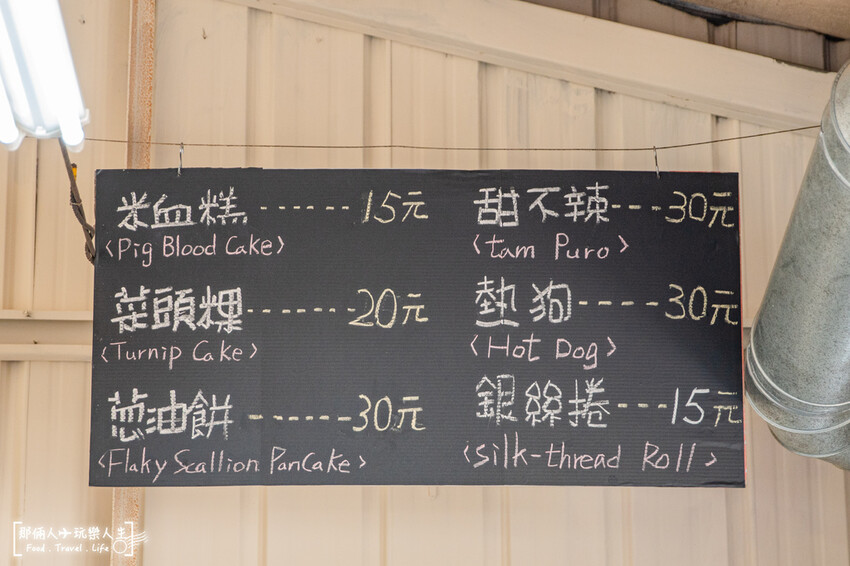 米血糕------15元
<Pig Blood Cake>
菜頭粿------20元
<Turnip Cake>
蔥油餅------30元
<Flaky Scallion PanCake>
甜不辣---30元
<tam Puro>
熱狗----30元
<Hot Dog>
銀絲捲---15元
<silk-thread Roll>
即倆人玩樂人生
Food . Travel . Life